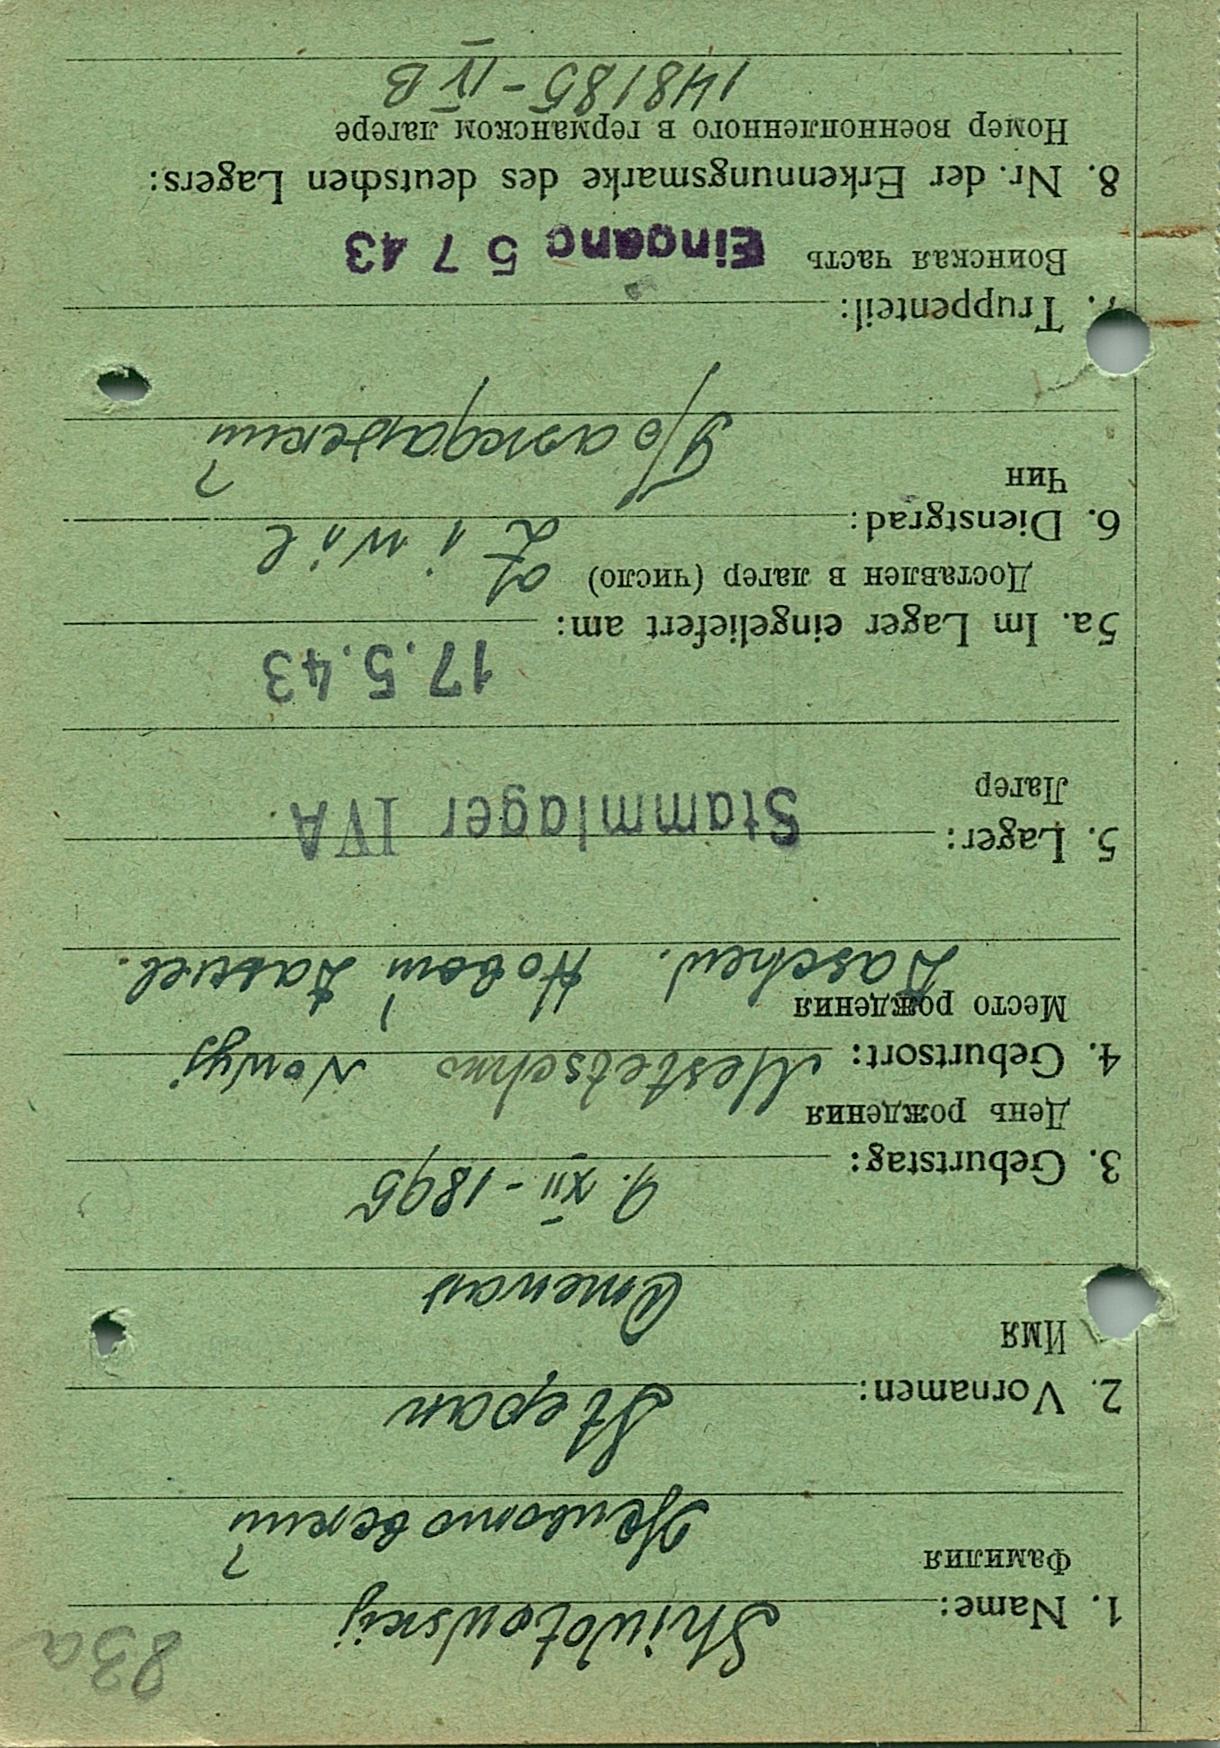 83a
1. Name: Shiwotowskij
Фамилия
Животовский
2. Vornamen: Stepan
Имя
Степан
3. Geburtstag: 9. XII - 1895
День рождения
4. Geburtsort: Nowyj
Место рождения
5. Lager: Stammlager IVA
Лагер
17.5.43
5a. Im Lager eingeliefert am:
Доставлен в лагер (число)
6. Dienstgrad: Ziwil
Чин
Гражданский
7. Truppenteil:
Воинская часть Eingang 5 7 43
8. Nr. der Erkennungsmarke des deutschen Lagers:
Номер военнопленного в германском лагере
148185 - IV B